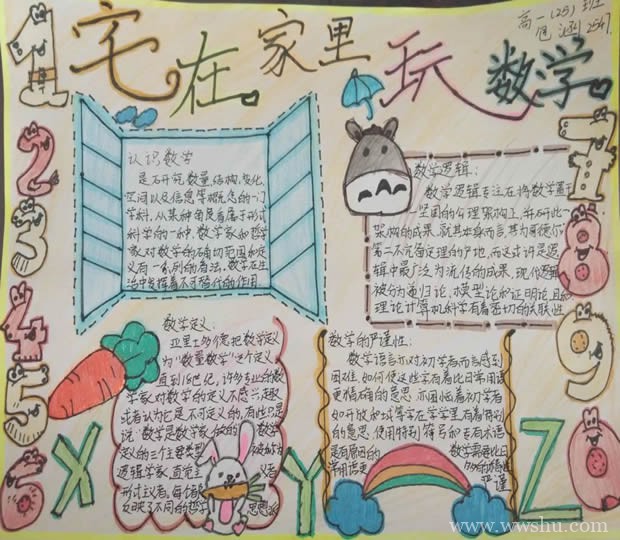 宅在家里玩数学
高一(25)班
认识数学
是研究数量、结构、变化、
空间以及信息等概念的一门
学科，从某种角度看属于形式
科学的一种，数学家和哲学
家对数学的确切范围和定
义有一系列的看法，数学在生
活中发挥着不可替代的作用。
数学逻辑：
数学逻辑专注在将数学置于
坚固的公理架构上，并研究此一
架构的成果，就其本身而言，其为哥德尔
第二不完备定理的产地，而这也许是逻
辑中最广为流传的成果，现代逻辑
被分为递归论、模型论和证明论，且和
理论计算机科学有着密切的关联性
数学定义：
亚里士多德把数学定义
为"数量数学"这个定义
直到18世纪，许多专业的数
学家对数学的定义不感兴趣
或者认为它是不可定义的，有些只是
说"数学是数学家做的
定义的三个主要类型
逻辑学家，直觉主义者
形式主义者，每个都
反映了不同的哲学思想
数学的严谨性：
数学语言亦对初学者而言感到
困难，如何使这些字有着比日常用语
更精确的意思，亦困恼着初学者
如开放和域等字在数学里有着特别
的意思，使用特别符号和专有术语
是有原因的 数学需要比日
常用语更多的精确性
严谨
1
2
3
4
5
6
7
8
9
0
X
Y
Z
www.wwshu.com